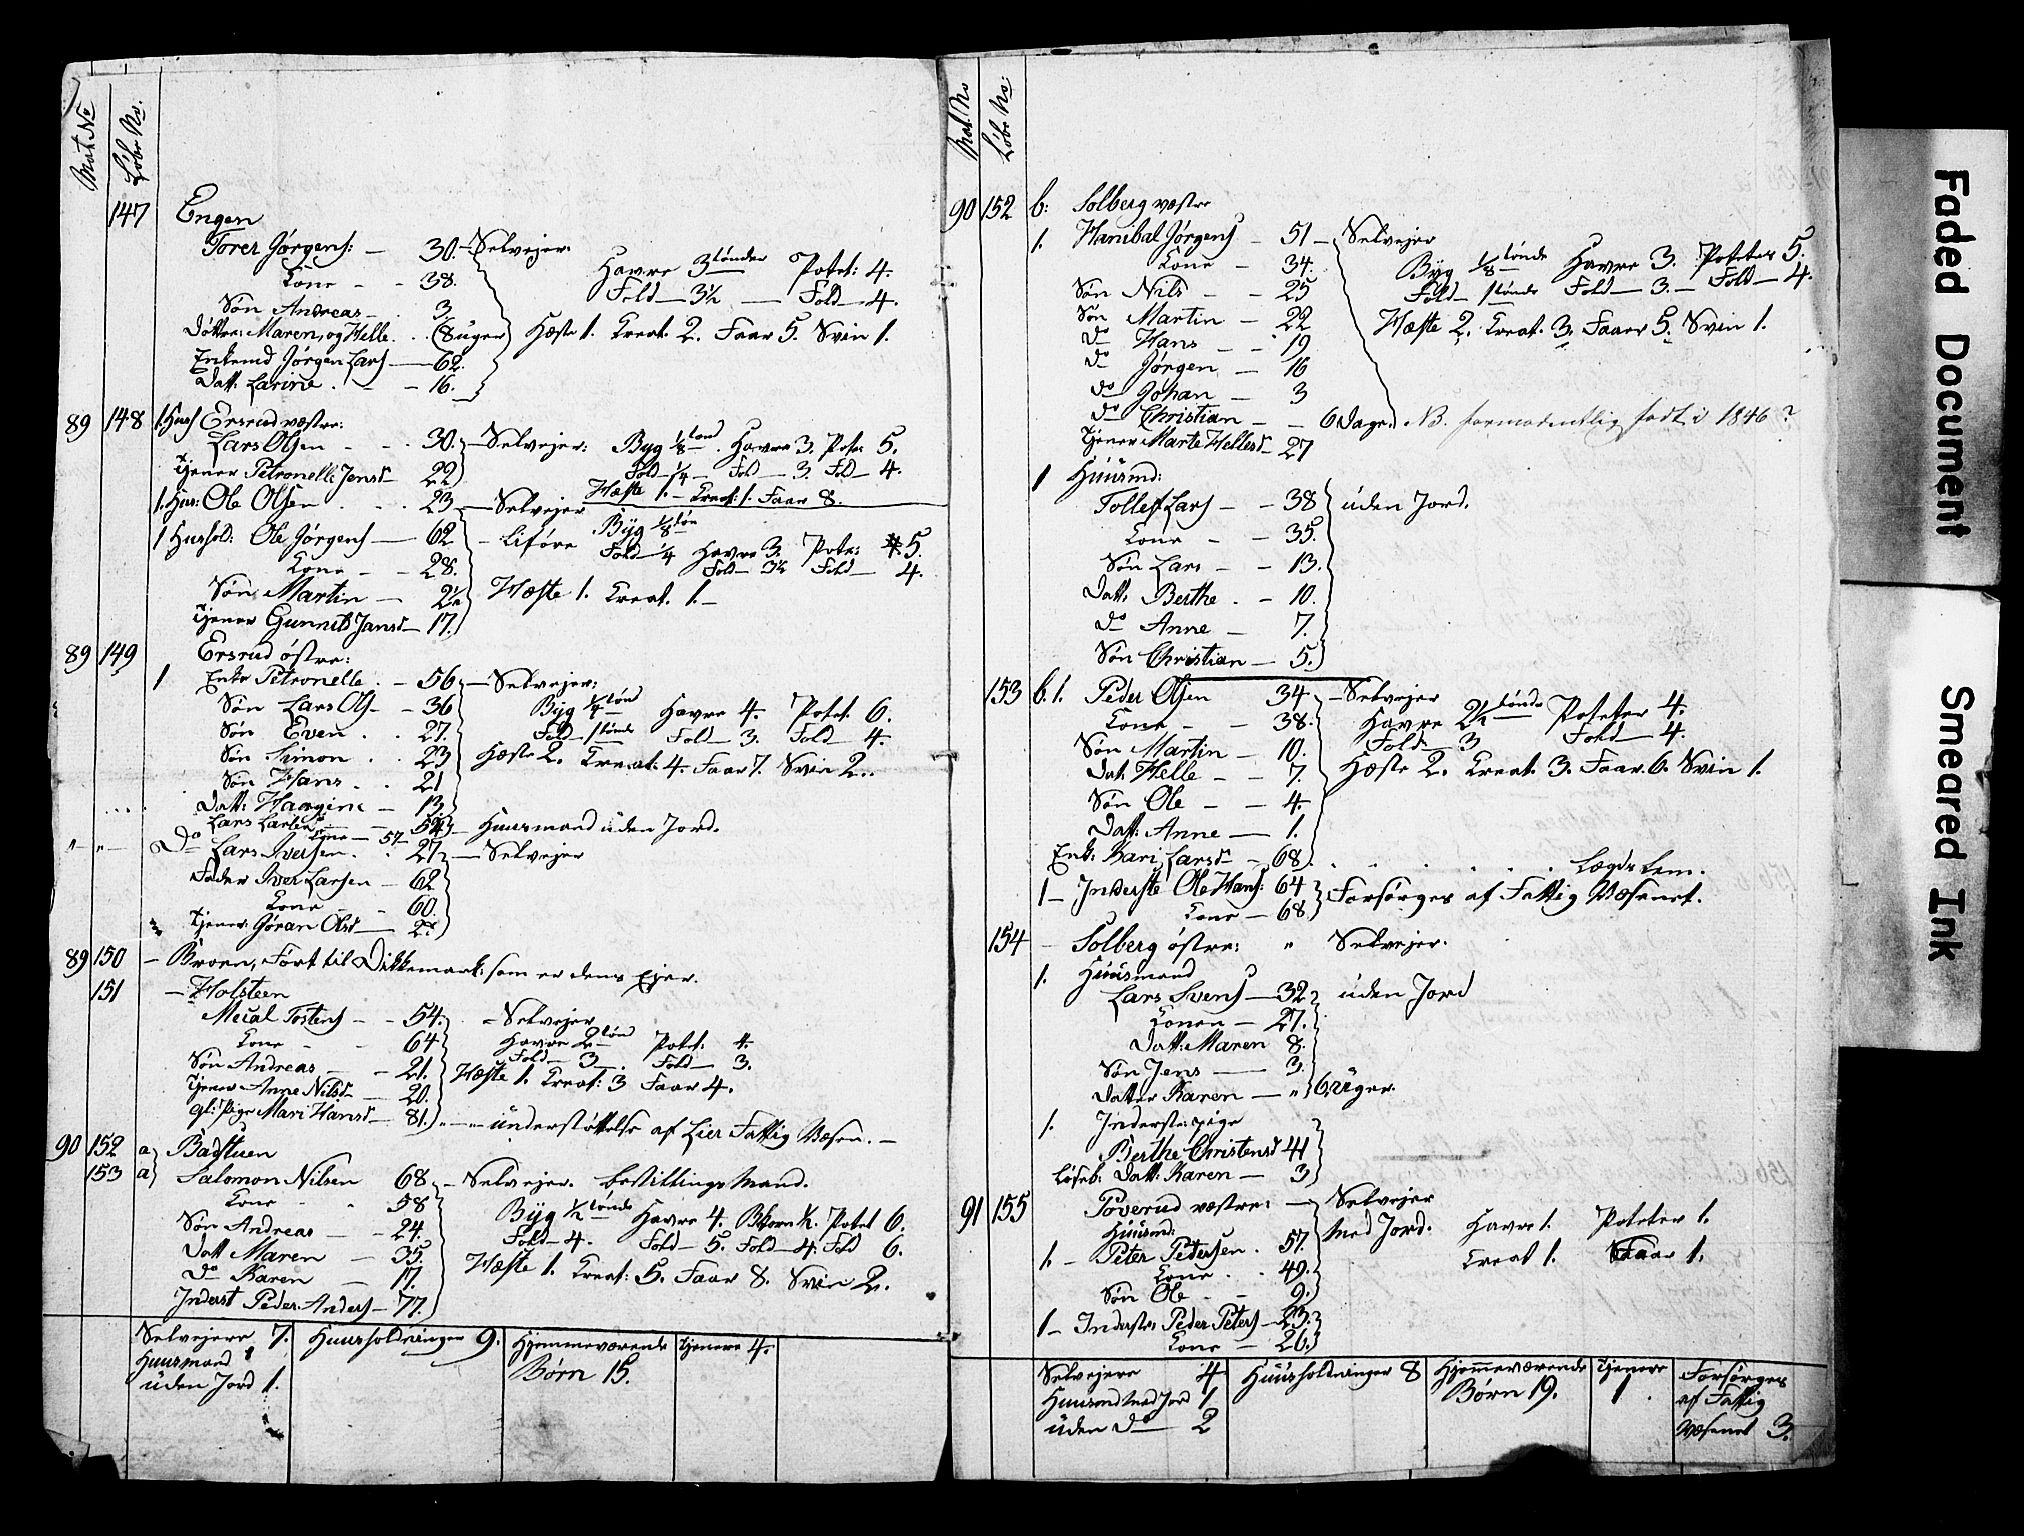 Mat. No
Løbe No.
147 Engen
Torer Jørgens: — 30. Selvejer.
Kone — 38. Havre 3 tønder Potet: 4.
Fold 3½ Fold 4.
Søn Andreas — 3.
Døttre: Maren, og Helle . . (8 uger) Heste 1. Creat. 2. Faar 5. Svin 1.
Enkemd Jørgen Lars — 62.
Datt. Larine . — 16.
89 148 1. Huus Ersrud vestre:
Lars Olsen — 30. Selvejer: Byg ⅛ tønd. Havre 3. Pote: 5.
tjener Petronelle Jensd 22 Fold ¼ — Fold 3. Fold 4.
Heste 1. — Creat: 1. Faar 8.
1. Hus: Ole Olsen . . 23 — Selvejer
1 Hushold: Ole Jørgens — 62 — Liføre Byg ⅛ tøn
Fold ¼ Havre 3. Pote: 5.
Kone — 28. Fold 3½ Fold 4.
Søn Martin — 2½ Heste 1. Creat. 1. —
tjener Gunnild Jansd — 17.
89 149 Ersrud østre:
1 Enke Petronelle . — 56 — Selvejer:
Søn Lars Ols — 36 Byg ¼ tønd Havre 4. Potet 6.
Søn Even . . 27. Fold 1 tønde Fold 3. Fold 4.
Søn Simon . . 23 Heste 2. Creat: 4. Faar 7. Svin 2.
Søn Hans . . 21
Datt: Hargine — 13.
Lars Larsen — 54 — Huusmand uden Jord.
Kone — 57
" " — Do Lars Iversen . . 27 — Selvejer
Fader Iver Larsen — 62
Kone — 60.
tjener Gøran Olsd —
89 150 — Broen, Ført til Dikkemark: som er dens Ejer.
151 — Holsteen
Meial Tostens — 54. — Selvejer
Kone — 64 Havre 2 tønd Potet: 4.
Fold 3. Fold 3.
Søn Andreas — 21. Heste 1. Creat: 3 Faar 4.
tjener Anne Nilsd — 20.
gl: Pige Mari Hansd — 81. " — " — understøttelse af Lier Fattig Væsen. —
90 152 a) Badstuen
153 a) Salomon Nilsen 68 — Selvejer. bestillings Mand.
Kone — 58 Byg ½ tønde Havre 4. Bkorn ½. Potet 6.
Søn Andreas — 24. Fold 4. Fold 5. Fold 4. Fold 6.
Datt Maren — 35. Heste 1. Creat: 5. Faar 8. Svin 2.
Do Karen — 17.
Inderst Peder Anders — 77.
Selvejere 7. Huusholdninger 9. Hjemmeværende tjenere 4.
Huusmand Børn 15.
uden Jord 1.
Mat. No
Løbe No
90 152 b: Solberg vestre
1. Hanibal Jørgens — 51 — Selvejer
Kone — 34. Byg ⅛ tønde Havre 3. Poteter 5.
Søn Nils — 25 Fold 1 tønde Fold 3. — Fold 4.
Søn Martin — 22 Heste 2. Creat. 3. Faarr 5. Svin 1.
do Hans — 19
do Jørgen — 16
do Johan — 3
do Christian — — 6 Dage. NB. formodentlig født i 1846?
tjener Marte Hellesd — 27
1 Huusmd:
Tollef Lars — 38 uden Jord.
Kone — 35.
Søn Lars — 13.
Datt: Berthe . — 10.
do Anne — 7.
Søn Christian — 5.
153 b. 1. Peder Olsen 34 — Selvejer
Kone — 38. Havre 2½ tønde Poteter 4.
Søn Martin — 10. Fold 3 Fold 4.
Dat. Helle — 7. Heste 2. Creat. 3. Faar. 6. Svin 1.
Søn Ole — 4.
Datt: Anne — 1.
Enk: Kari Larsd — 68. . . . . . Lægds Lem.
1 — Inderste Ole Hans: 64 Forsørges af Fattig Væsenet.
Kone — 68.
154 — Solberg østre: " Selvejer.
1. Huusmand
Lars Svens — 32 uden Jord
Konen — 27.
Datt: Maren 8.
Søn Jens — 3.
Datter Karen — " 6 Uger.
1. Inderste: pige
Berthe Christensd 41
Løseb. Datt: Karen — 3
91 155 Poverud vestre: — Selvejer
Huusmd: Med Jord. Havre 1. Poteter 1.
1. — Peter Pedersen . 57. Creat 1. Faar 1.
Kone . . 49.
Søn Ole — 9.
1 — Inderste Peder Peters — 23.
Kone — 26.
Selvejere 4 Huusholdninger 8 Hjemmeværende tjenere Forsørges
Huusmd Med Jord 1 Børn 19. 1 . af Fattig
uden do 2 Væsenet 3.
Faded Document
Smeared Ink